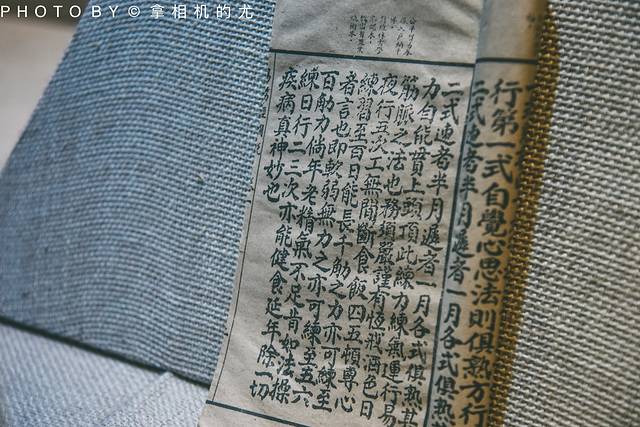 PHOTO BY © 拿相机的尤
行第一式自覺心思法則俱熟方行
二式速者半月遲者一月各式俱熟
二式速者半月遲者一月各式俱熟其
力自能貫上頭頂此練力練氣運行易
筋脈之法也務須嚴謹有恆戒酒色日
夜行五次工無間斷食飯四五頓專心
練習至百日能長千觔之力
者言也即軟弱無力之亦可練至五六
百觔力倘年老精氣不足肯如法操
練日行二三次亦能健食延年除一切
疾病真神妙也